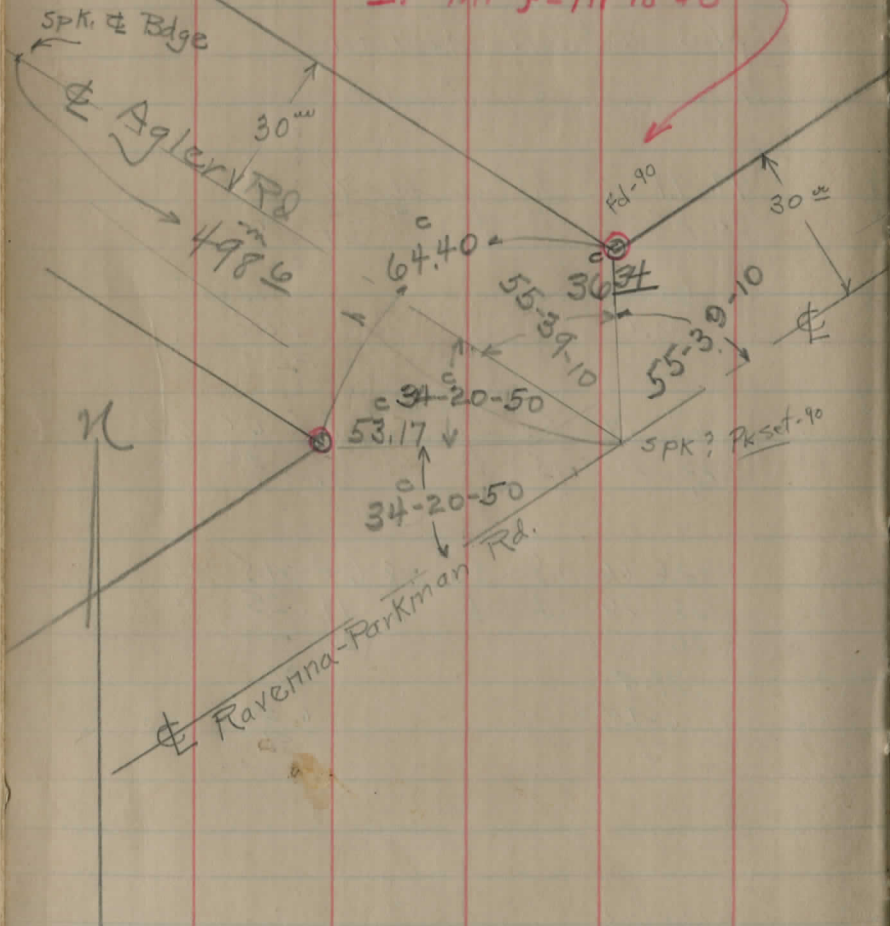 spk. ℄ Bdge
℄ Agler Rd
30
m
498 6
c
64.40
Fd-90
30
c
36 34
55-39-10
55-39-10
℄
c
34-20-50
c
53.17
c
34-20-50
spk? Pk set-90
N
℄ Ravenna-Parkman Rd.